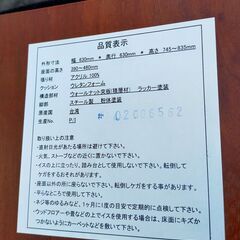 品質表示
外形寸法 幅 630mm * 奥行 630mm * 高さ 745~835mm
座面の高さ 390~480mm
張り材 アクリル 100%
クッション ウレタンフォーム
構造部材 ウォールナット突板(積層材) ラッカー塗装
脚部 スチール製 粉体塗装
原産国 台湾
生産No. P/I 02006562
取り扱い上の注意
・直射日光があたる場所は避けて下さい。
・火気、ストーブなどの近くに置かないで下さい。
・イスの上に立ったり、踏み台として使用しないで下さい。転倒して
ケガをするおそれがあります。
・座面以外に腰をかけないで下さい。転倒して
ケガをするおそれがあります。
ネジ等のゆるみなど、1ヶ月に1度の目安で定期的に点検して
下さい。
・ウッドフロアーや畳の上でイスを使用する場合は、床面にキズが
つかないようにカーペットなどを敷いて下さい。